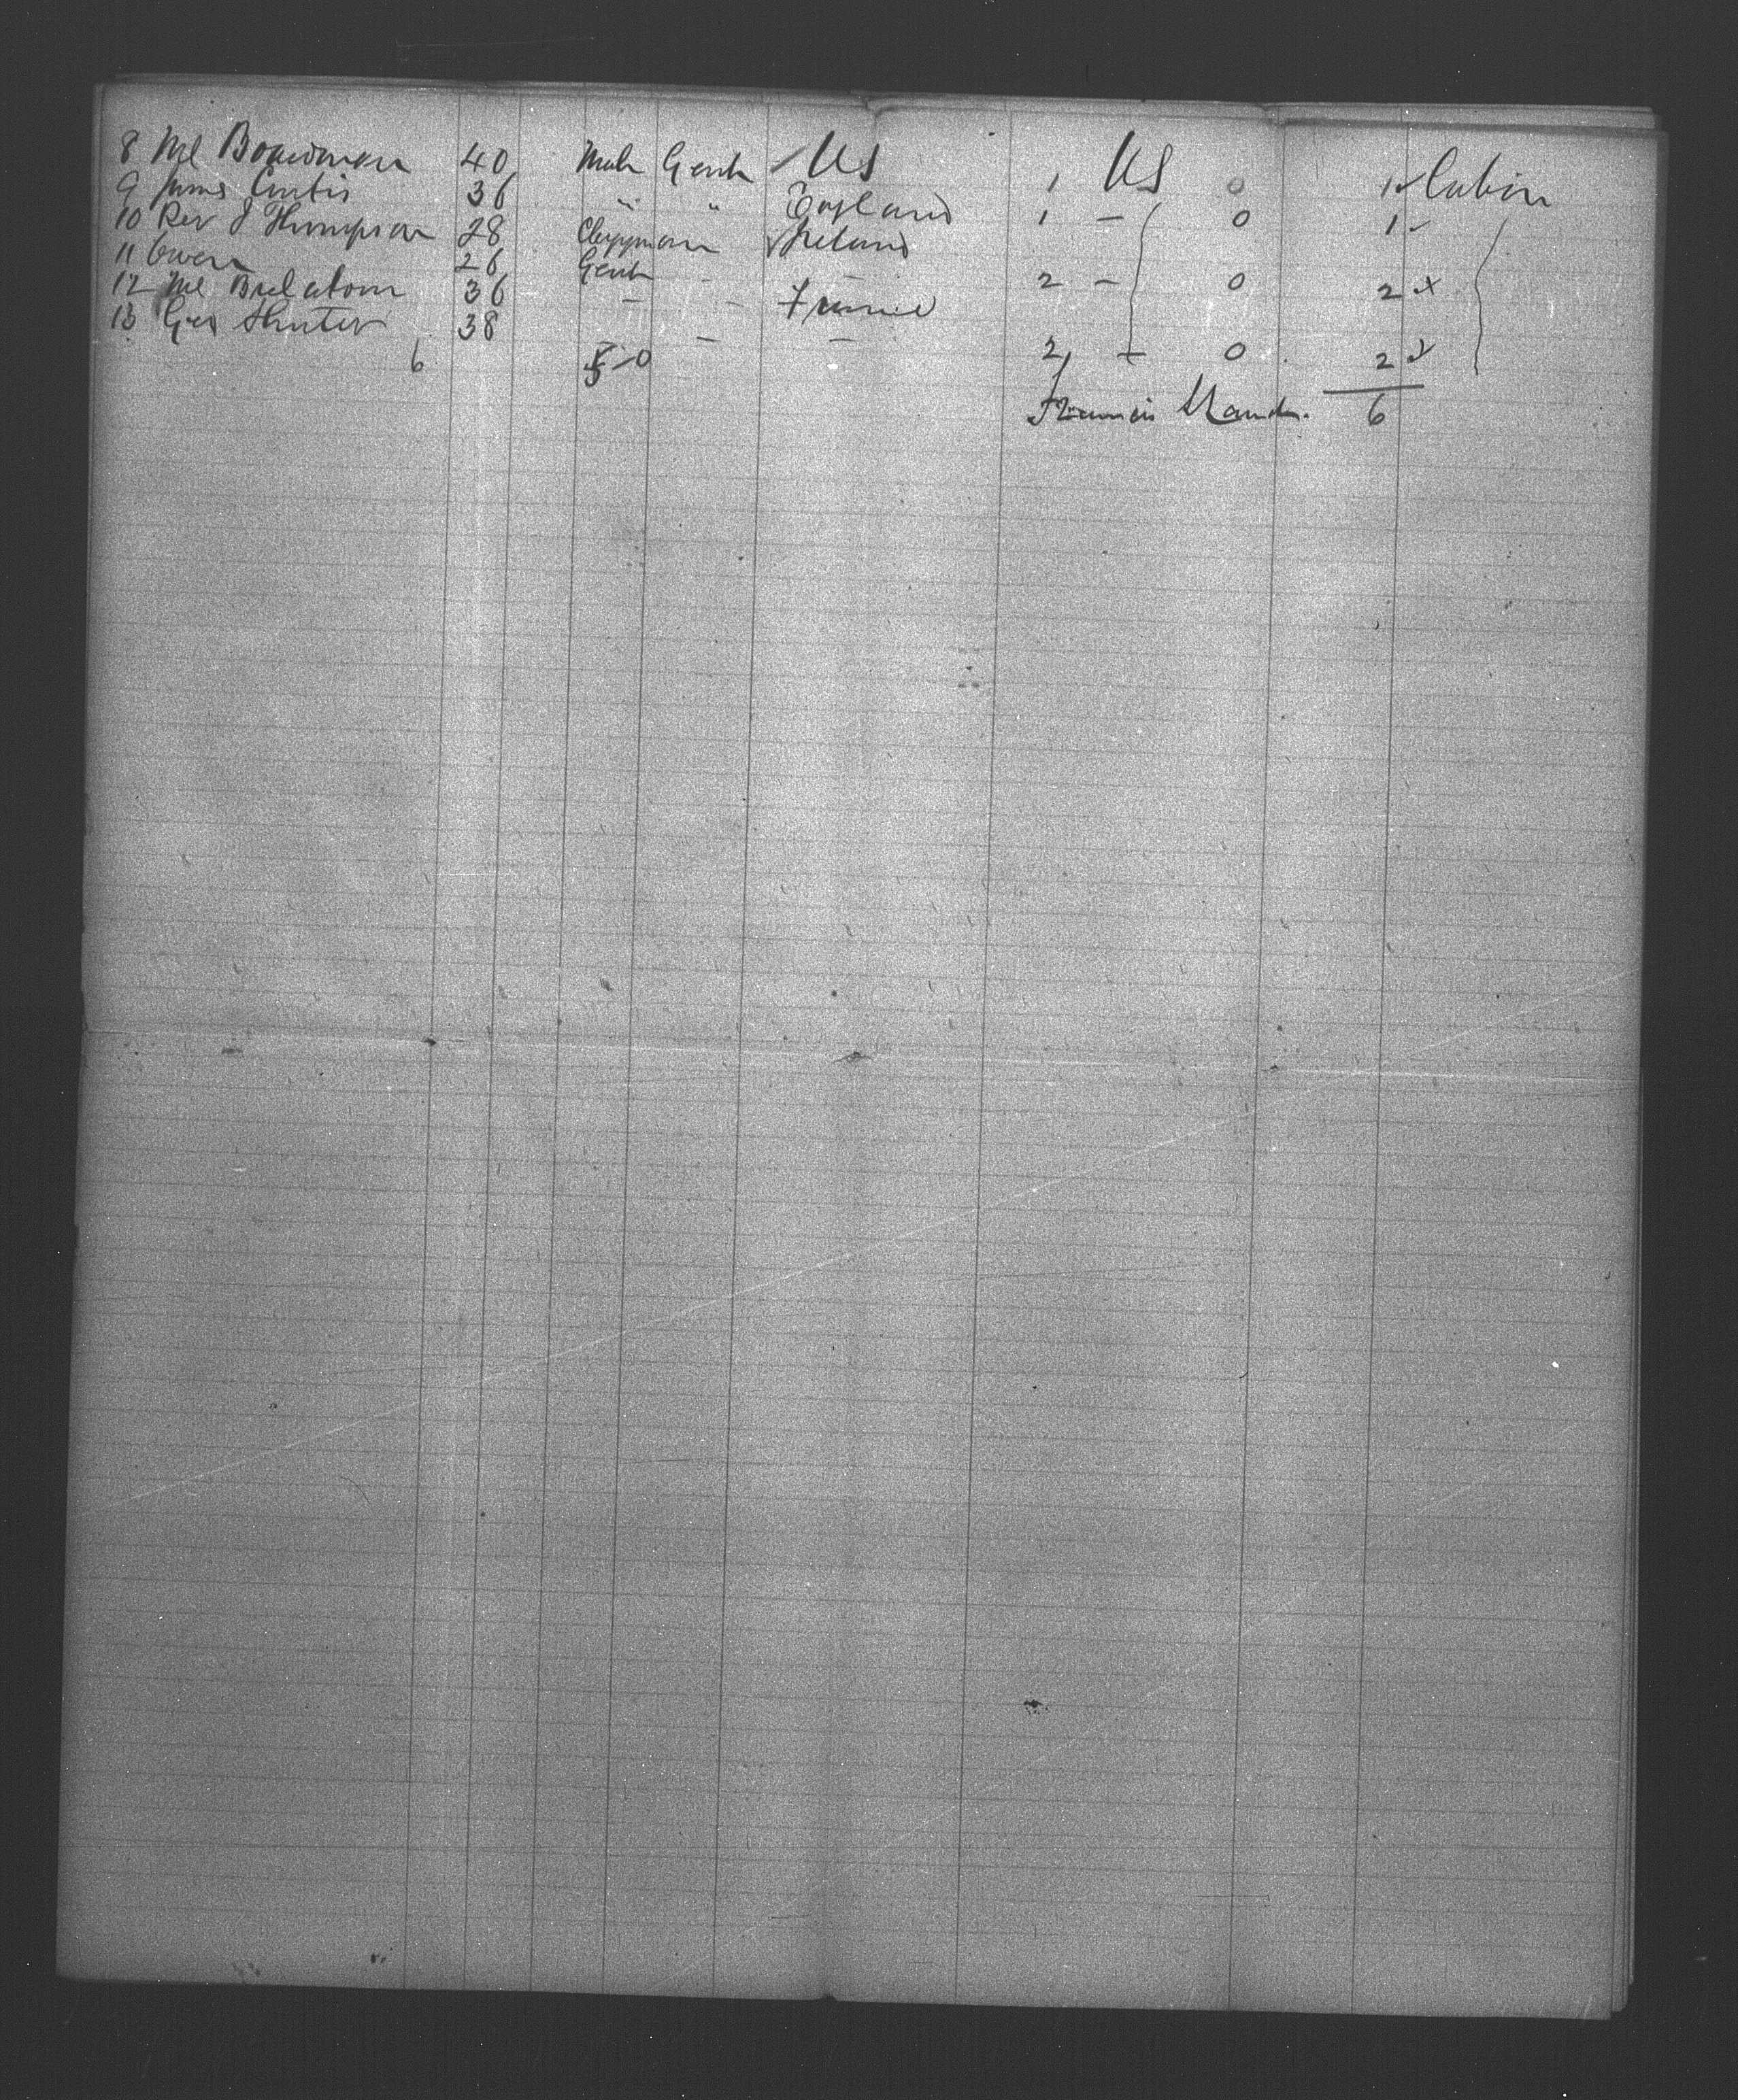 8 Mr Boardman 40 Male Gent US 1 US 0 1 Cabin
9 James Curtis 36 " " England 1 - 0 1
10 Rev J Thompson 28 Clergyman Ireland
11 Owen 26 Gent - - 2 - 0 2
12 Mr 36 - - France
13 Geo Hunter 38 - - 2 - 0 2
6 5 0
Francis 6